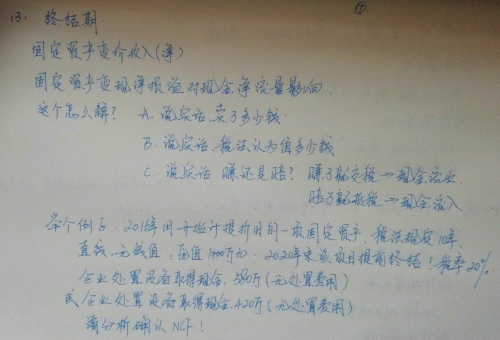 ⑦.
(3) 终结期.
固定资产变价收入(净)
固定资产变现净损益对现金净流量影响.
这个怎么解? A. 说实话, 卖了多少钱
B. 说实话, 税法认为值多少钱
C. 说实话, 赚还是赔? 赚了就交税→现金流出
赔了就抵税→现金流入
举个例子. 2016年开始计提折旧的一项固定资产, 税法规定10年.
直线, 无残值, 原值1000万元. 2020年末该项目提前终结! 税率20%
企业处置设备取得现金. 580万(无处置费用)
或企业处置设备取得现金. 420万(无处置费用)
请分析确认NCF!